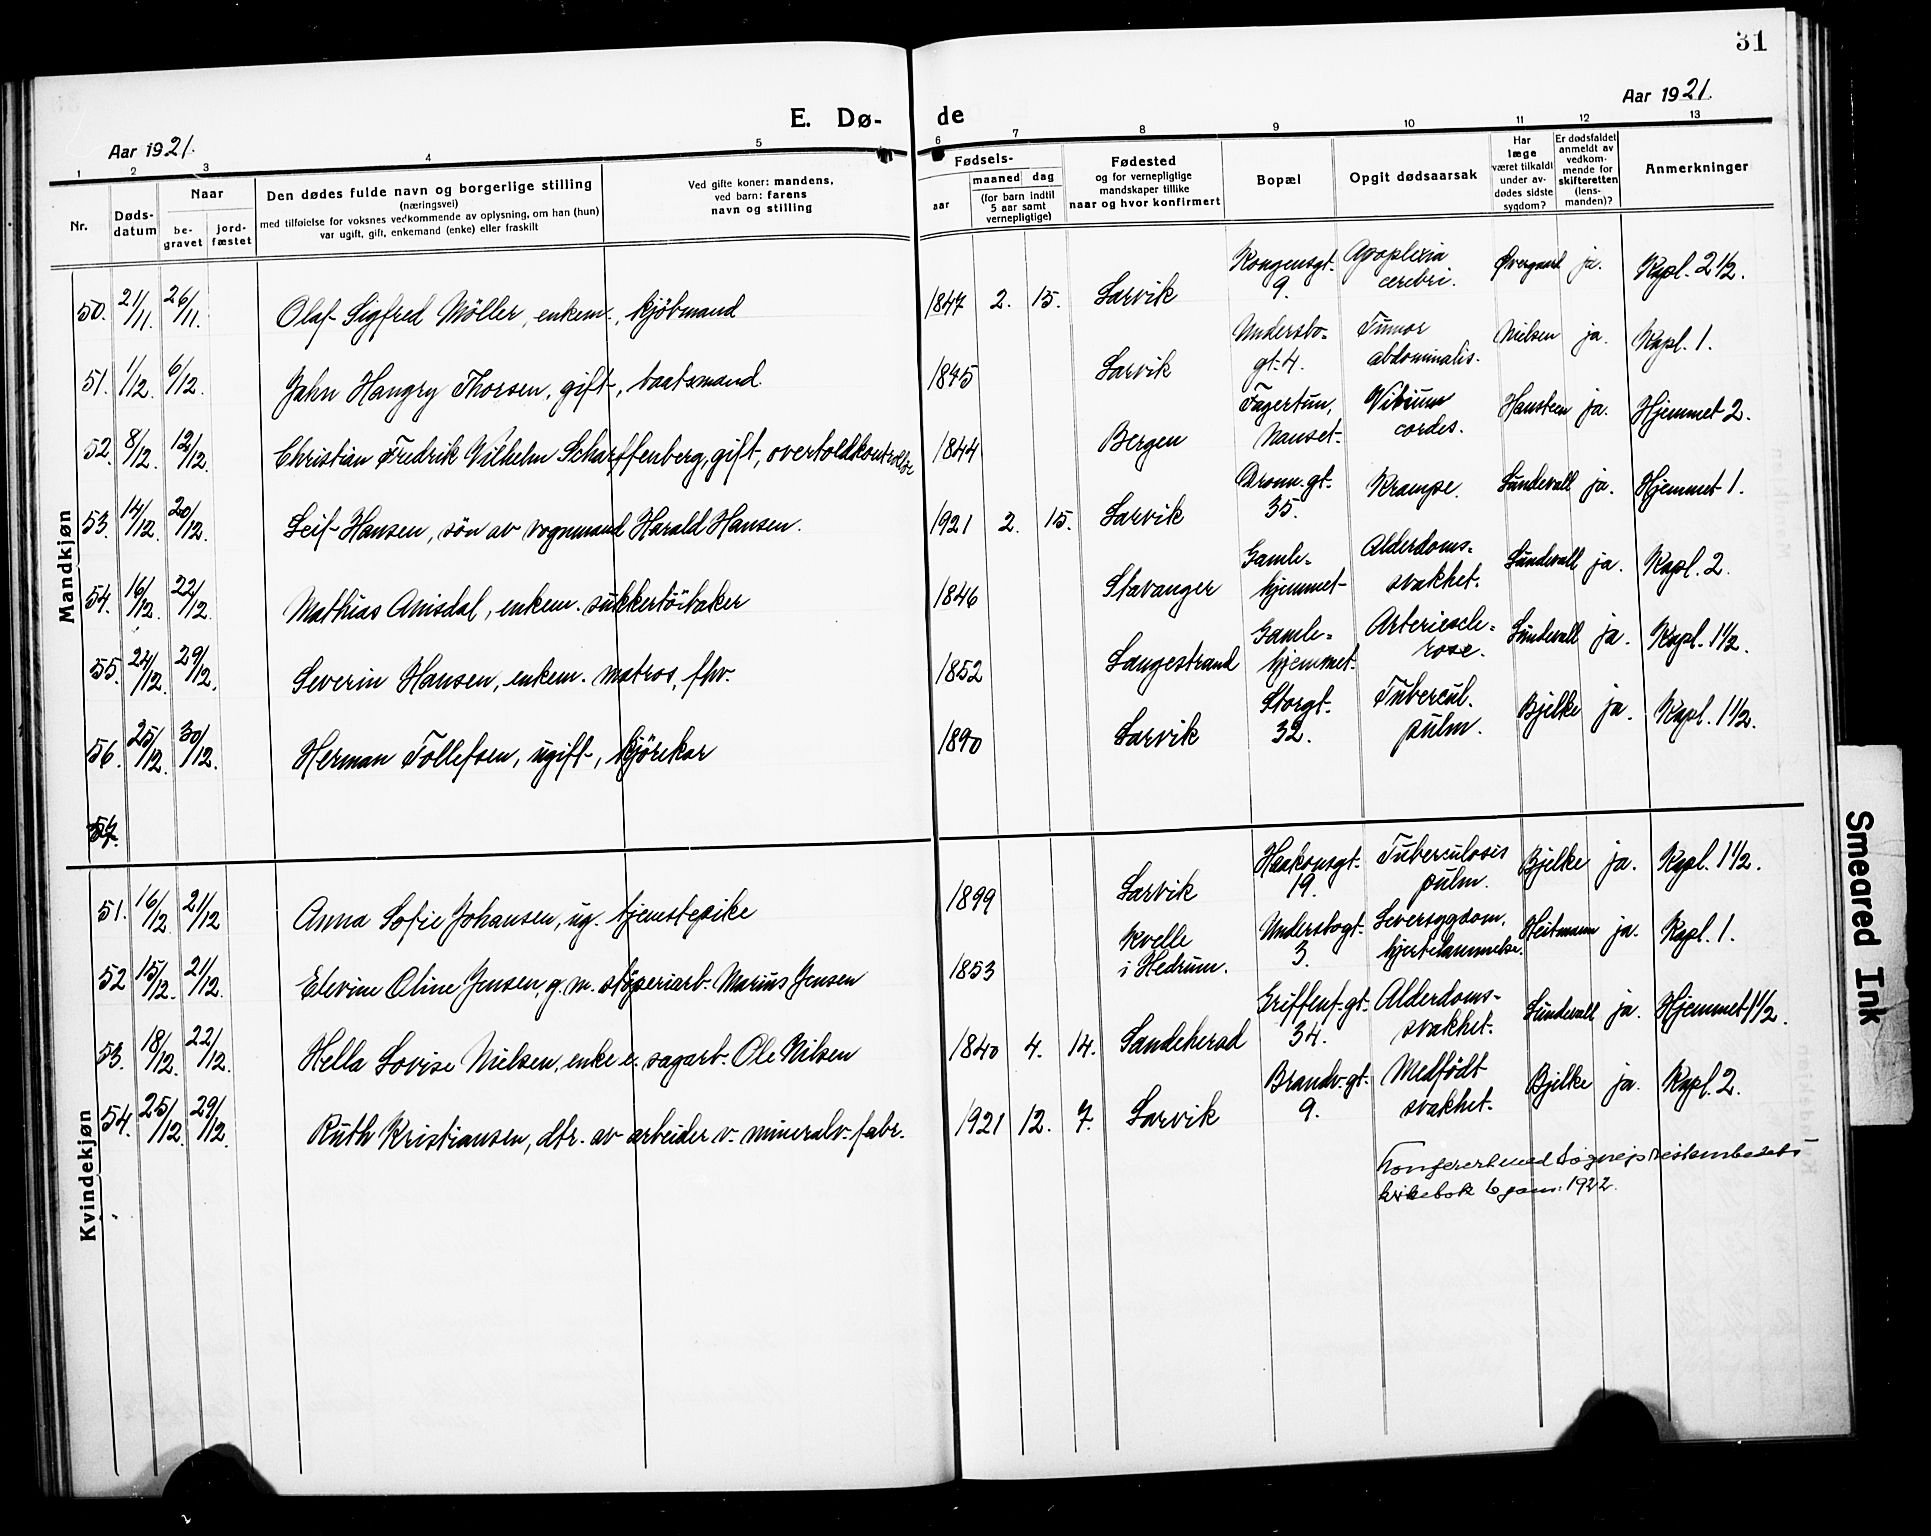 31
Aar 1921.
E. Dø-
de
Aar 1921.
1 2 3 4 5 6 7 8 9 10 11 12 13
Nr.
Døds-
datum
Naar
be-
gravet
jord-
fæstet
Den dødes fulde navn og borgerlige stilling
(næringsvei)
med tilføielse for voksnes vedkommende av oplysning, om han (hun)
var ugift, gift, enkemand (enke) eller fraskilt
Ved gifte koner: mandens,
ved barn: farens
navn og stilling
Fødsels-
aar
maaned dag
(for barn indtil
5 aar samt
vernepligtige)
Fødested
og for vernepligtige
mandskaper tillike
naar og hvor konfirmert
Bopæl
Opgit dødsaarsak
Har
læge
været tilkaldt
under av-
dødes sidste
sygdom?
Er dødsfaldet
anmeldt av
vedkom-
mende for
skifteretten
(lens-
manden)?
Anmerkninger
Mandkjøn
50. 21/11. 26/11. Olaf Sigfred Möller, enkem., kjöbmand 1847 2. 15. Larvik Kongensgt. 9. Apoplixia cerebri. Övergaard ja. Kapl. 2 1/2.
51. 1/12. 6/12. Jahn Hangry Thorsen, gift, baatsmand. 1845 Larvik Undersbo-gt. 4. Tumor abdominalis. Nielsen ja. Kapl. 1.
52. 8/12. 12/12. Christian Fredrik Vilhelm Scharffenberg, gift, overtoldkontrollör 1844 Bergen Fagertun, Nanset. Vitium cordes. Hansteen ja. Hjemmet 2.
53. 14/12. 20/12. Leif Hansen, sön av vognmand Harald Hansen. 1921 2. 15. Larvik Dronn. gt. 35. Krampe. Sundevall ja. Hjemmet 1.
54. 16/12. 22/12. Mathias Anisdal, enkem. sukkertöibaker 1846 Stavanger Gamle-hjemmet Alderdoms-svakhet. Sundevall ja. Kapl. 2.
55. 24/12. 29/12. Severin Hansen, enkem. matros, fhv. 1852 Langestrand Gamle-hjemmet. Arteriescle-rose. Sundevall ja. Kapl. 1 1/2.
56. 25/12. 30/12. Herman Tollefsen, ugift, kjörekar 1890 Larvik Storgt. 32. Tubercul. pulm. Bjelke ja. Kapl. 1 1/2.
57.
Kvindekjøn
51. 16/12. 21/12 Anna Sofie Johansen, ug. tjenstepike 1899 Larvik Haakonsgt. 19. Tuberculosis pulm. Bjelke ja. Kapl. 1 1/2.
52 15/12. 21/12. Elevine Oline Jensen, g. m. stöperiarb. Marius Jensen 1853 Kvelle i Hedrum. Undersbogt. 3. Leversygdom, hjertelammelse. Heitmann ja. Kapl. 1.
53. 18/12. 22/12. Hella Lovise Nielsen, enke e. sagarb. Ole Nilsen 1840 4. 14. Sandeherad Griffenf. gt. 34. Alderdoms-svakhet. Sundevall ja. Hjemmet 1 1/2.
54. 25/12. 29/12. Ruth Kristiansen, dtr. av arbeider v. mineralv. fabr. 1921 12. 7. Larvik Brandv. gt. 9. Medfödt svakhet. Bjelke ja. Kapl. 2.
Konferert med Sogneprestembedets
kirkebok 6 jan. 1922.
Smeared Ink